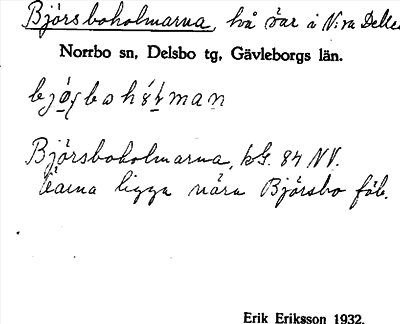 Björsboholmarna, två öar i N:ra Dellen
Norrbo sn, Delsbo tg, Gävleborgs län.
Björsboholmarna, kG. 84 NV.
Öarna ligga nära Björsbo fäb.
Erik Eriksson 1932.